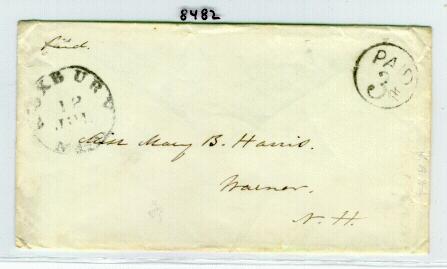 8482
Paid.
ROXBURY
12
JUL
MAS
PAID
3
Miss Mary B. Harris.
Warner.
N. H.